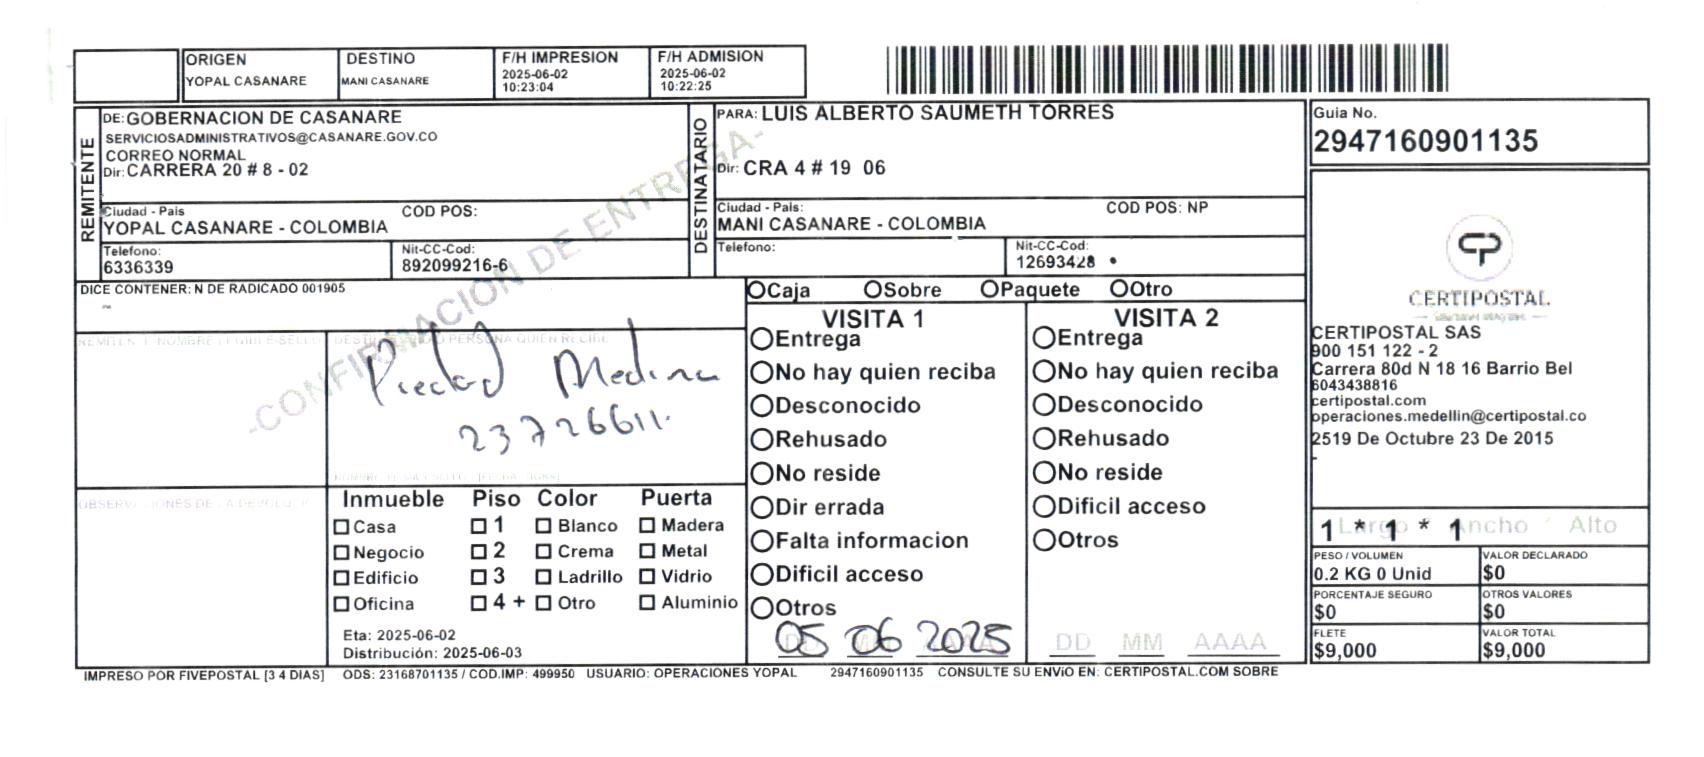 ORIGEN
YOPAL CASANARE
DESTINO
MANI CASANARE
F/H IMPRESION
2025-06-02
10:23:04
F/H ADMISION
2025-06-02
10:22:25
REMITENTE
DE: GOBERNACION DE CASANARE
SERVICIOSADMINISTRATIVOS@CASANARE.GOV.CO
CORREO NORMAL
Dir: CARRERA 20 # 8 - 02
Ciudad - Pais
COD POS:
YOPAL CASANARE - COLOMBIA
Telefono:
6336339
Nit-CC-Cod:
892099216-6
DESTINATARIO
PARA: LUIS ALBERTO SAUMETH TORRES
Dir: CRA 4 # 19 06
Ciudad - Pais:
COD POS: NP
MANI CASANARE - COLOMBIA
Telefono:
Nit-CC-Cod:
12693428
Guia No.
2947160901135
-CONFIRMACION DE ENTREGA-
DICE CONTENER: N DE RADICADO 001905
Caja Sobre Paquete Otro
Piedad Medina
23726611
OBSERVACIONES DE LA DEVOLUCI
Inmueble Piso Color Puerta
Casa 1 Blanco Madera
Negocio 2 Crema Metal
Edificio 3 Ladrillo Vidrio
Oficina 4 + Otro Aluminio
Eta: 2025-06-02
Distribución: 2025-06-03
VISITA 1
Entrega
No hay quien reciba
Desconocido
Rehusado
No reside
Dir errada
Falta informacion
Dificil acceso
Otros
05 06 2025
VISITA 2
Entrega
No hay quien reciba
Desconocido
Rehusado
No reside
Dificil acceso
Otros
DD MM AAAA
CERTIPOSTAL
CERTIPOSTAL SAS
900 151 122 - 2
Carrera 80d N 18 16 Barrio Bel
6043438816
certipostal.com
operaciones.medellin@certipostal.co
2519 De Octubre 23 De 2015
-
1 * 1 * 1
Largo Ancho Alto
PESO / VOLUMEN
0.2 KG 0 Unid
VALOR DECLARADO
$0
PORCENTAJE SEGURO
$0
OTROS VALORES
$0
FLETE
$9,000
VALOR TOTAL
$9,000
IMPRESO POR FIVEPOSTAL [3 4 DIAS] ODS: 23168701135 / COD.IMP: 499950 USUARIO: OPERACIONES YOPAL 2947160901135 CONSULTE SU ENVíO EN: CERTIPOSTAL.COM SOBRE